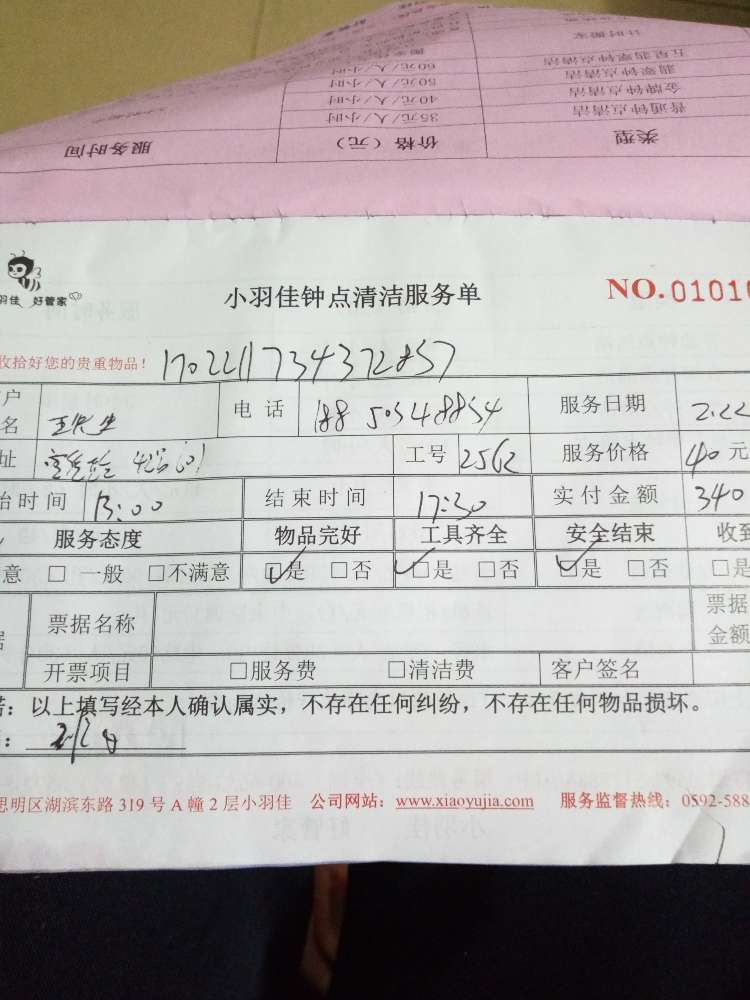 类型 价格（元） 服务时间
普通钟点清洁 35元/人/小时
金牌钟点清洁 40元/人/小时
翡翠钟点清洁 50元/人/小时
五星翡翠钟点清洁 60元/人/小时
计时搬家
羽佳 好管家
小羽佳钟点清洁服务单 NO.01010
收拾好您的贵重物品！ 170221173437285​7
户名 王先生 电话 18850548854 服务日期 2.22
址 工号 2562 服务价格 40元
始时间 13:00 结束时间 17:30 实付金额 340
服务态度 物品完好 工具齐全 安全结束 收到
意 □一般 □不满意 ☑是 □否 ☑是 □否 ☑是 □否 □是
票据名称 票据金额
开票项目 □服务费 □清洁费 客户签名
：以上填写经本人确认属实，不存在任何纠纷，不存在任何物品损坏。
思明区湖滨东路319号A幢2层小羽佳 公司网站：www.xiaoyujia.com 服务监督热线：0592-588